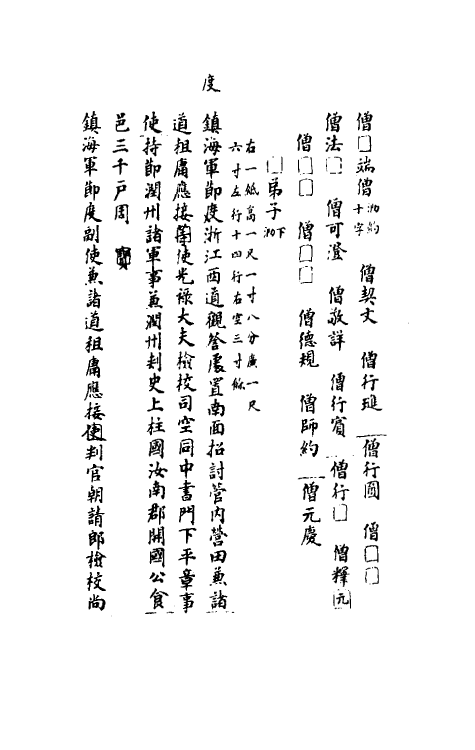 僧□端僧泐約十字 僧契文 僧行璡 僧行圓 僧□□
僧法□ 僧可澄 僧敬詳 僧行賓 僧行□ 僧釋元
僧□□ 僧□□ 僧德規 僧師約 僧元慶
□弟子下泐
右一紙高一尺一寸八分廣一尺
六寸左行十四行右空三寸餘
度
鎮海軍節度浙江西道觀詧處置南面招討管内營田兼諸
道租庸應接等使光祿大夫檢校司空同中書門下平章事
使持節潤州諸軍事兼潤州刺史上柱國汝南郡開國公食
邑三千戸周 寶
鎮海軍節度副使兼諸道租庸應接使判官朝請郎檢校尚